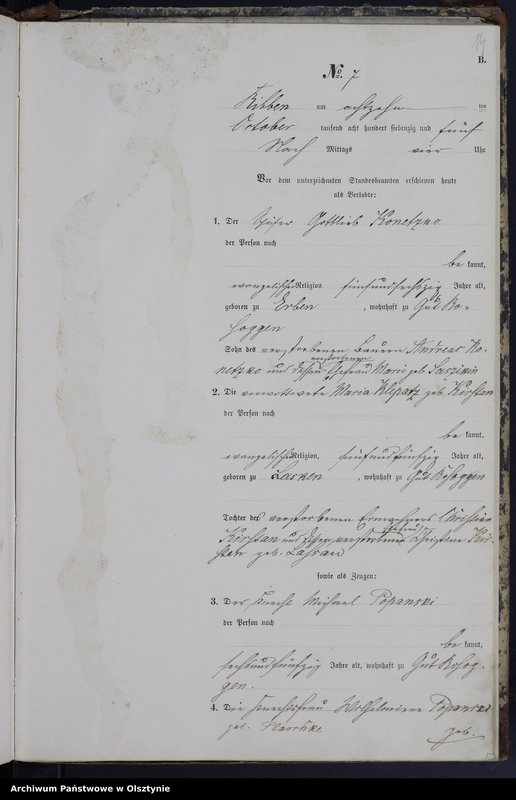 14
B.
No. 7
Ribben am achtzehn ten
October tausend acht hundert siebenzig und fünf
Nach Mittags vier Uhr
Vor dem unterzeichneten Standesbeamten erschienen heute
als Verlobte:
1. Der Gottlieb Konetzko
der Person nach
be kannt,
evangelischer Religion fünfundsechszig Jahre alt,
geboren zu Erben, wohnhaft zu Gut Ko-
soggen
Sohn des verstorbenen Bauern Andreas Ko-
verstorbenen
netzko und dessen Ehefrau Marie geb.
2. Die verwittwete Maria Klepatz geb. Kirstan
der Person nach
be kannt,
evangelischer Religion, fünfundfünfzig Jahre alt,
geboren zu Lasken, wohnhaft zu Gut Kosoggen
Tochter des verstorbenen Einwohners Christian
Ehefrau
Kirstan und dessen verstorbenen Christine Kir-
stan geb.
sowie als Zeugen:
3. Der Knecht Michael Popanski
der Person nach
be kannt,
sechsundfünfzig Jahre alt, wohnhaft zu Gut Kosog-
gen.
4. Die Knechtsfrau Wilhelmine Popanski
geb.
geb.
Archiwum Państwowe w Olsztynie